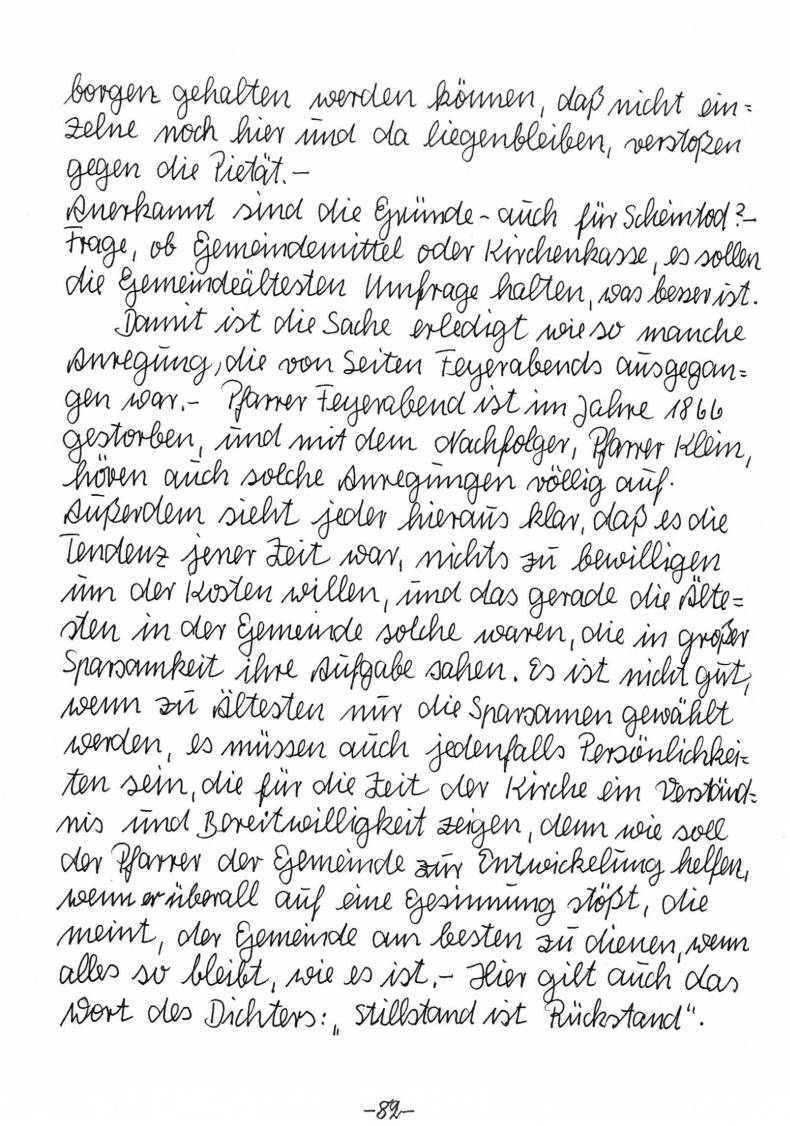 borgen gehalten werden können, daß nicht ein=
zelne noch hier und da liegenbleiben, verstoßen
gegen die Pietät.–
Anerkannt sind die Gründe – auch für Scheintod?–
Frage, ob Gemeindemittel oder Kirchenkasse, es sollen
die Gemeindeältesten Umfrage halten, was besser ist.
Damit ist die Sache erledigt wie so manche
Anregung, die von Seiten Feyerabends ausgegan=
gen war.– Pfarrer Feyerabend ist im Jahre 1866
gestorben, und mit dem Nachfolger, Pfarrer Klein,
hören auch solche Anregungen völlig auf.
Außerdem sieht jeder hieraus klar, daß es die
Tendenz jener Zeit war, nichts zu bewilligen
um der Kosten willen, und das gerade die Älte=
sten in der Gemeinde solche waren, die in großer
Sparsamkeit ihre Aufgabe sahen. Es ist nicht gut,
wenn zu Ältesten nur die Sparsamen gewählt
werden, es müssen auch jedenfalls Persönlichkei=
ten sein, die für die Zeit der Kirche ein Verständ=
nis und Bereitwilligkeit zeigen, denn wie soll
der Pfarrer der Gemeinde zur Entwickelung helfen,
wenn er überall auf eine Gesinnung stößt, die
meint, der Gemeinde am besten zu dienen, wenn
alles so bleibt, wie es ist.– Hier gilt auch das
Wort des Dichters: „Stillstand ist Rückstand“.
–82–